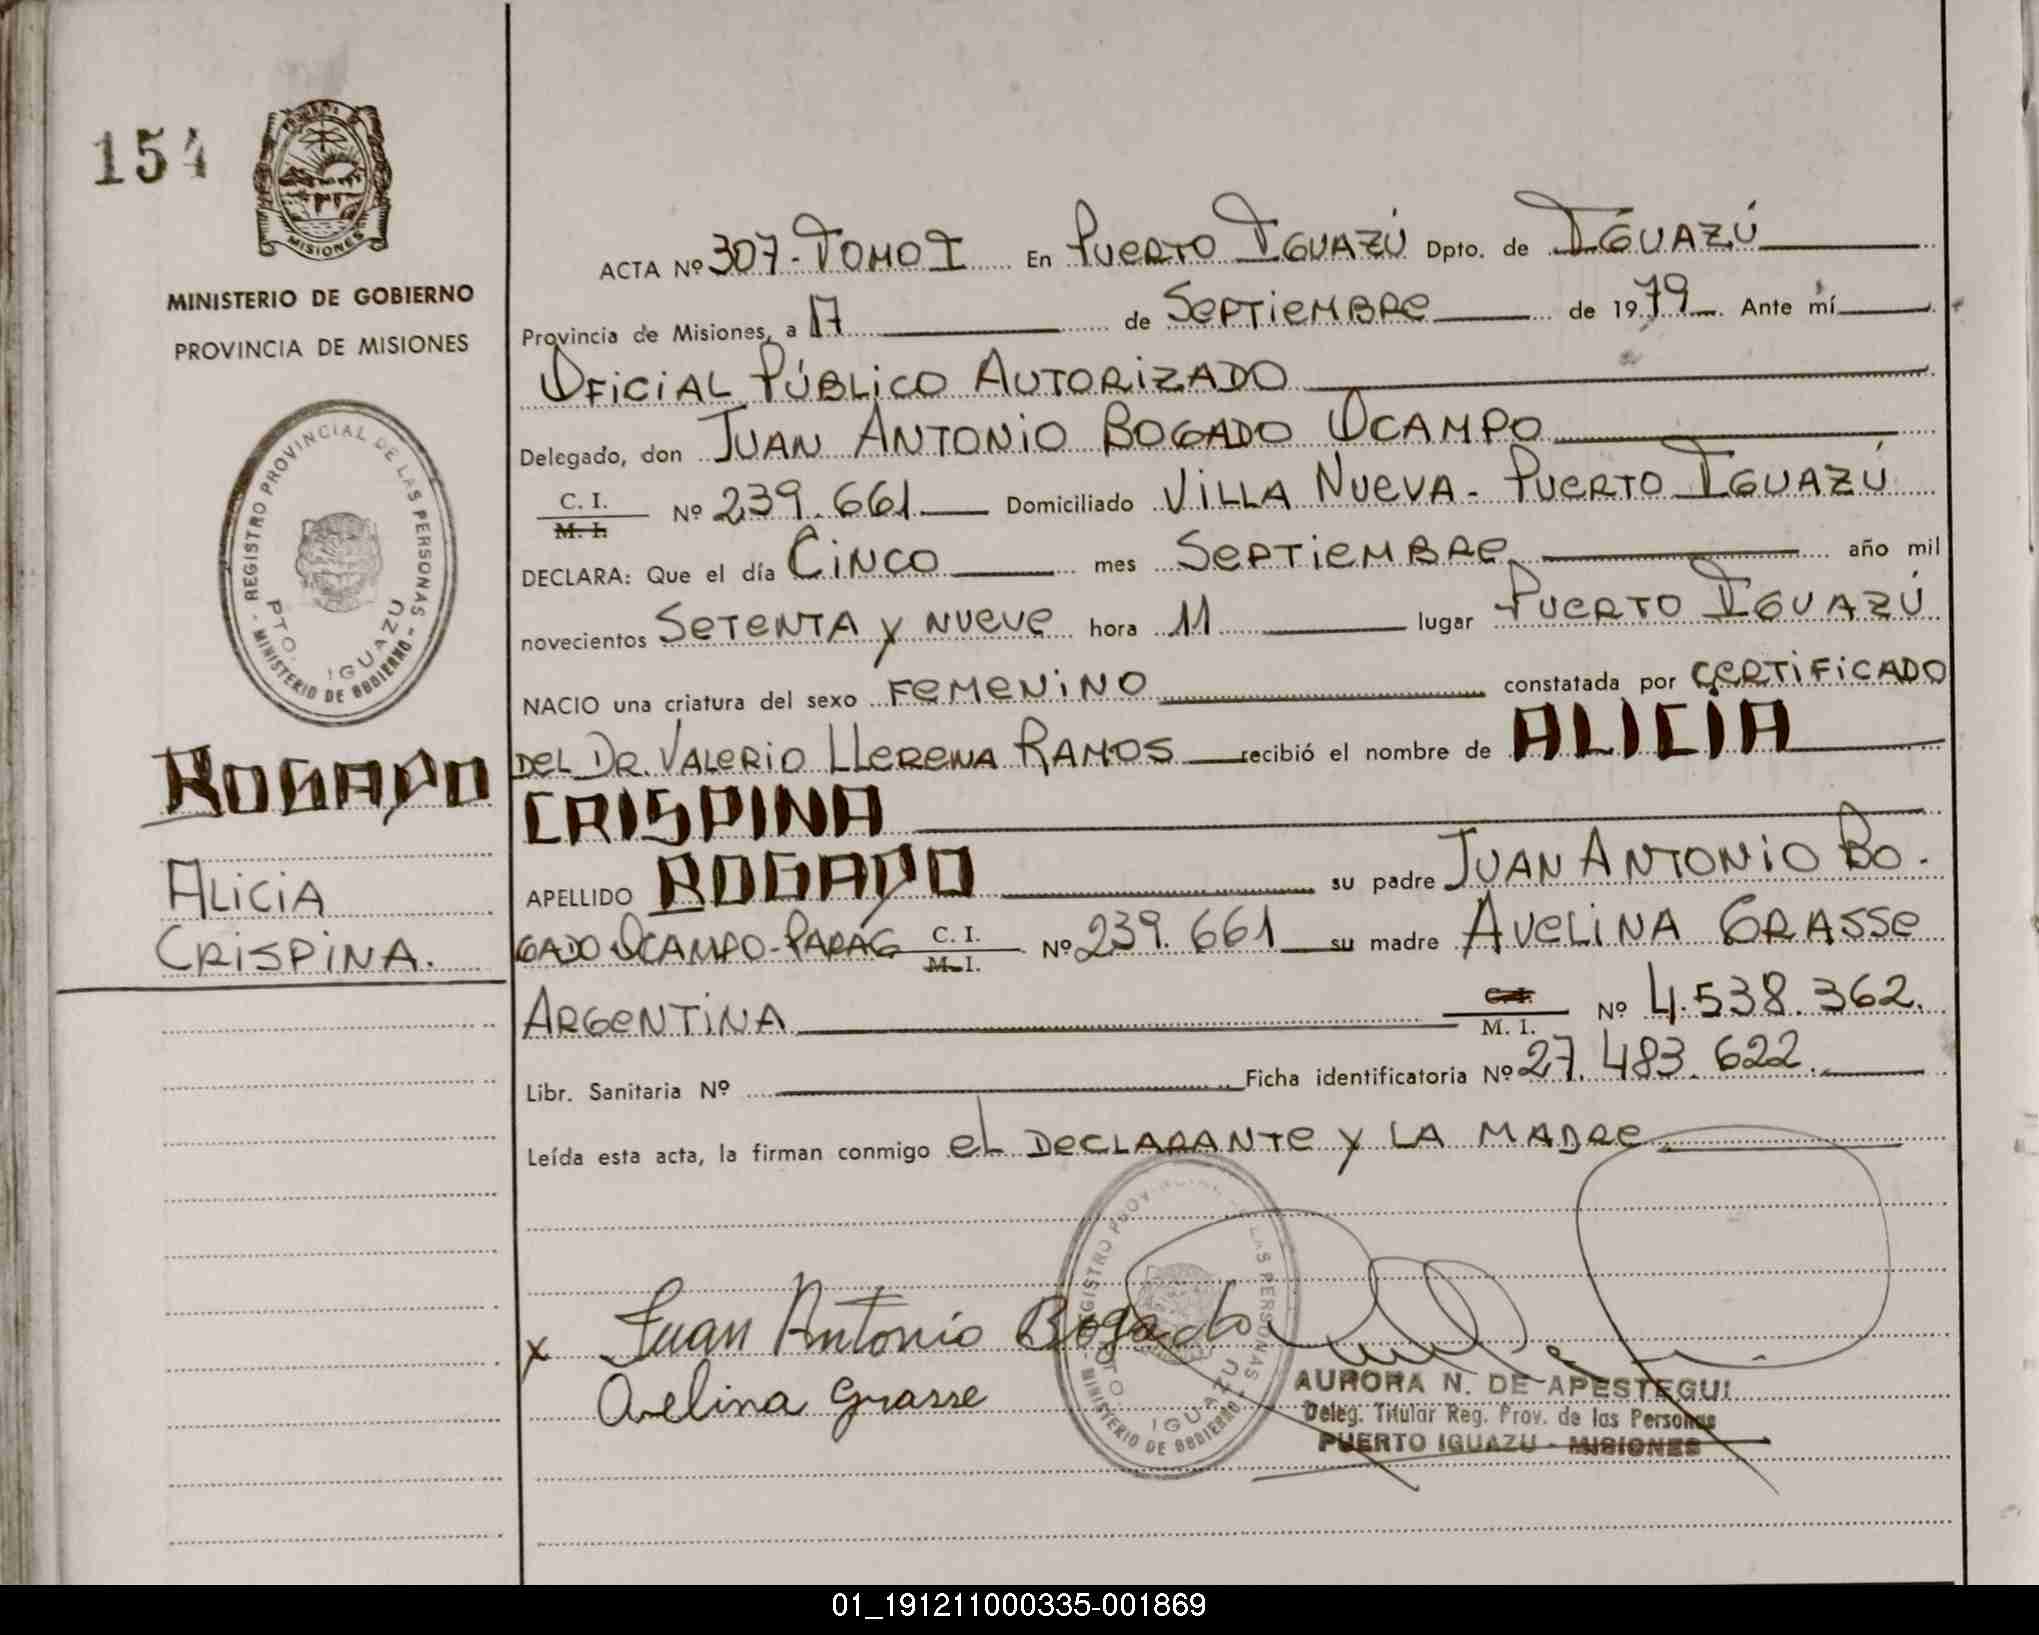 154
MISIONES
MINISTERIO DE GOBIERNO
PROVINCIA DE MISIONES
REGISTRO PROVINCIAL DE LAS PERSONAS
PTO. IGUAZU
- MINISTERIO DE GOBIERNO -
BOGADO
ALICIA
CRISPINA.
ACTA Nº 307 - TOMO I En PUERTO IGUAZÚ Dpto. de IGUAZÚ
Provincia de Misiones, a 17 de SEPTIEMBRE de 1979 Ante mí
OFICIAL PÚBLICO AUTORIZADO
Delegado, don JUAN ANTONIO BOGADO OCAMPO
C. I.
M. I. Nº 239.661 Domiciliado VILLA NUEVA - PUERTO IGUAZÚ
DECLARA: Que el día CINCO mes SEPTIEMBRE año mil
novecientos SETENTA y NUEVE hora 11 lugar PUERTO IGUAZÚ
NACIO una criatura del sexo FEMENINO constatada por CERTIFICADO
DEL DR. VALERIO LLERENA RAMOS recibió el nombre de ALICIA
CRISPINA
APELLIDO BOGADO su padre JUAN ANTONIO BO-
GADO OCAMPO - PARAG C. I. M. I. Nº 239.661 su madre AVELINA GRASSE
ARGENTINA C. I. M. I. Nº 4.538.362.
Libr. Sanitaria Nº Ficha identificatoria Nº 27.483.622.
Leída esta acta, la firman conmigo EL DECLARANTE y LA MADRE
REGISTRO PROVINCIAL DE LAS PERSONAS
PTO. IGUAZU
MINISTERIO DE GOBIERNO -
x Juan Antonio Bogado
Avelina Grasse
AURORA N. DE APESTEGUI
Deleg. Titular Reg. Prov. de las Personas
PUERTO IGUAZU - MISIONES
01_191211000335-001869